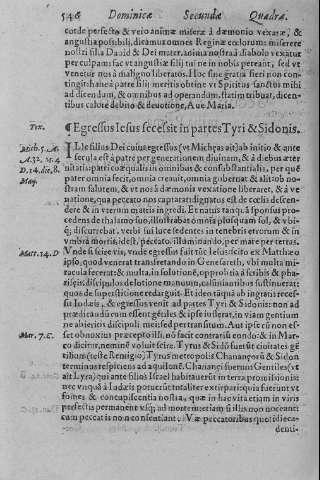 546 Dominicæ Secundæ Quadra.
corde perfecto & vero animæ miseræ à dæmonio vexatæ, &
angustia possibili, dicamus omnes Reginæ cœlorum: miserere
nostri filia Dauid & Dei mater: anima nostra à diabolo vexatur
per culpam: fac vt angustiæ filij tui ne in nobis pereant, sed vt
venetur nos à maligno libera
Hoc sine gratia fieri non con-
tingit: hanc à patre filij meritis obtinet vt Spiritus sanctus mihi
ad dicendum, & omnibus ad operandum, statim tribuat, dicen-
tibus calore debito & deuotione, Aue Maria.
Tex. ¶ Egressus Iesus secessit in partes Tyri & Sidonis.
Mich. 5. A. ILle filius Dei cuius egressus (vt Michęas ait) ab initio & ante
A. 32. 
sæcula est à patre per generationem diuinam, & à diebus æter
D. 14. 
nitatis patri coæqualis in omnibus & consubstantialis, per quē
May.
pater omnia fecit, omnia creauit, omnia gubernat & alit ob no-
stram salutem, & vt nos à dæmonis vexatione liberaret, & à ve
natione, qua peccato nos captarat: dignatus est de cœlis descen-
dere & in vterum matris ingredi. Et natus tanquā sponsus pro-
cedens de thalamo suo, illustrabat omnia plusquam sol, & vbi-
q; discurrebat, verbi sui luce sedentes in tenebris errorum & in
vmbra mortis, id est, peccato, illuminando, per mare per terras.
Matt. 14. D Vnde si scire vis, vnde egressus fuit tūc Iesus: scito ex Matthæo
ipso, quod venerat transfretando in Genesareth, vbi multa mi-
racula fecerat: & multa, in solutionē, opprobria à scribis & pha-
risęis: discipulos de lotione manuum, calūniantibus sustinuerat:
quos de superstitione redarguit. Et ideo tāquā ab ingratis reces-
sit Iudæis, & egressus venit ad partes Tyri & Sidonis: non ad
prædicandū cum essent gētiles & ipse iusserat, in viam gentium
ne abieritis discipuli: meis sed per transitum. Aut ipse cū non es-
Mar. 7. C. set obnoxius præcepto illi, nō facit contra: si eundo: & in Mar-
co dicitur, neminē voluit scire. Tyrus & Sidō fuerūt ciuitates gē
tilium (teste Remigio) Tyrus metropolis Chananęorū & Sidon
terminus respiciens ad aquilonē. Chananęi fuerunt Gentiles (vt
ait Lyra) qui ante filios Israel habitauerūt in terra promissionis:
nec vnquā à Iudæis potuerūt totaliter extirpari: quia fuerunt vt
fomes & concupiscentia nostra, quæ in hac vita etiam in viris
perfectis permanent vsq; ad mortem: etiam si illis non noceant:
cum peccatis non consentiant. Væ peccatoribus quotidie ca-
denti-